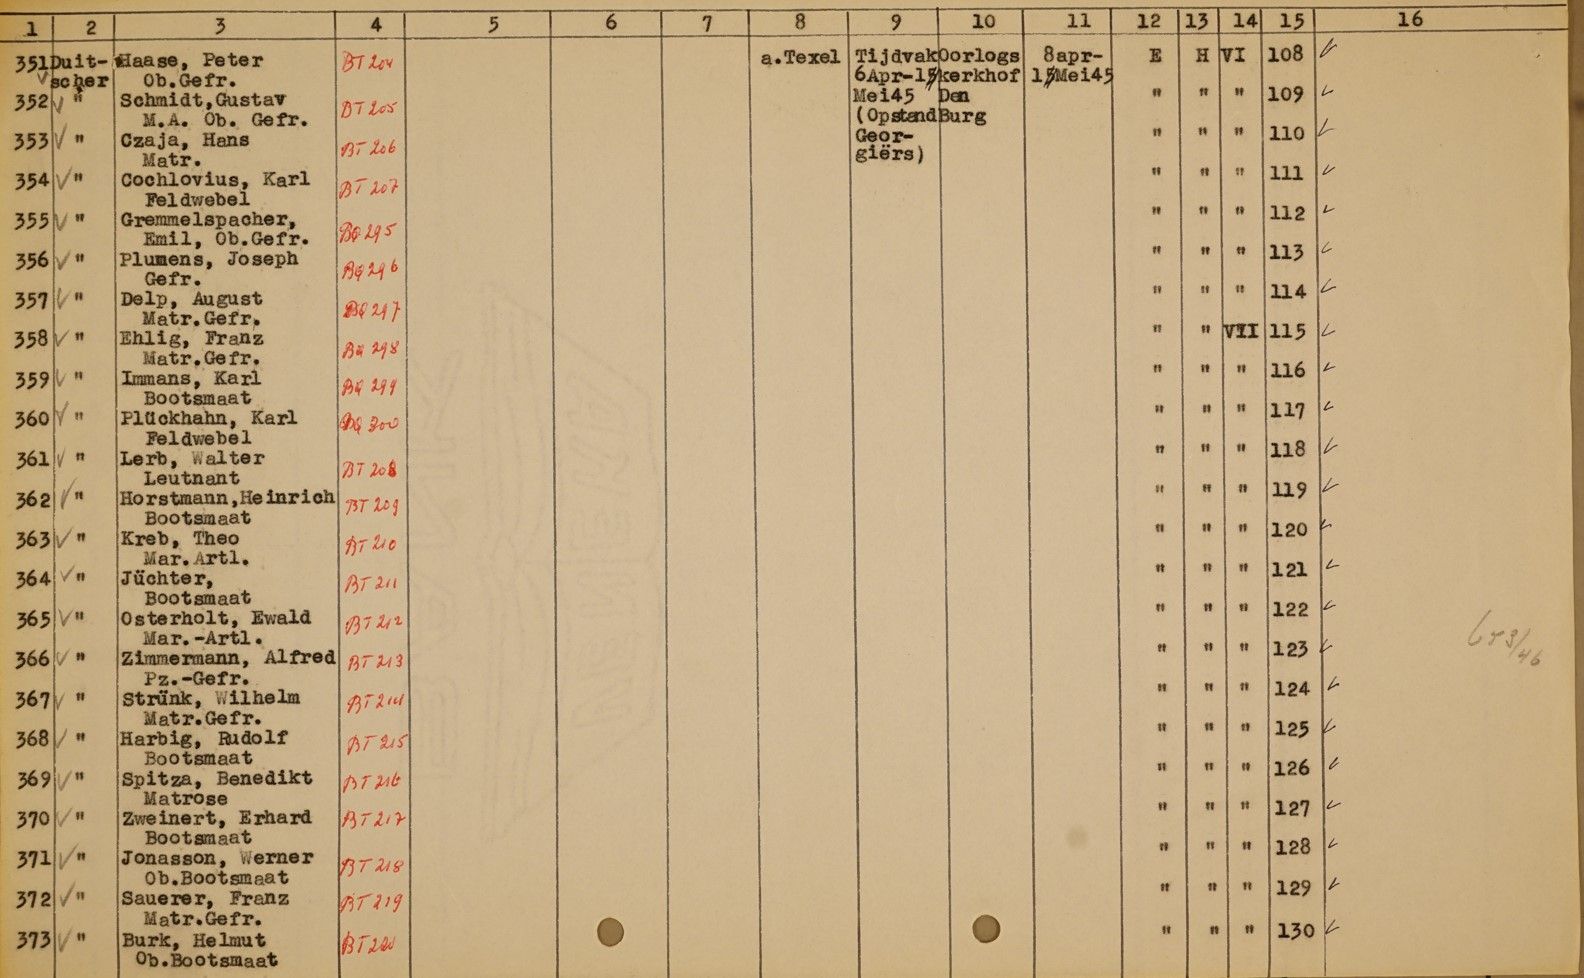 1 2 3 4 5 6 7 8 9 10 11 12 13 14 15 16
351 Duit- Haase, Peter BT 204 a.Texel Tijdvak Oorlogs 8apr- E H VI 108
scher Ob.Gefr. 6Apr-15 kerkhof 15Mei45
352 " Schmidt,Gustav BT 205 Mei45 Den " " " 109
M.A. Ob. Gefr. (Opstand Burg
353 " Czaja, Hans BT 206 Geor- " " " 110
Matr. giërs)
354 " Cochlovius, Karl BT 207 " " " 111
Feldwebel
355 " Gremmelspacher, BQ 295 " " " 112
Emil, Ob.Gefr.
356 " Plumens, Joseph BQ 296 " " " 113
Gefr.
357 " Delp, August BQ 297 " " " 114
Matr.Gefr.
358 " Ehlig, Franz BQ 298 " " VII 115
Matr.Gefr.
359 " Immans, Karl BQ 299 " " " 116
Bootsmaat
360 " Plückhahn, Karl BQ 300 " " " 117
Feldwebel
361 " Lerb, Walter BT 208 " " " 118
Leutnant
362 " Horstmann,Heinrich BT 209 " " " 119
Bootsmaat
363 " Kreb, Theo BT 210 " " " 120
Mar.Artl.
364 " Jüchter, BT 211 " " " 121
Bootsmaat
365 " Osterholt, Ewald BT 212 " " " 122
Mar.-Artl.
366 " Zimmermann, Alfred BT 213 " " " 123
Pz.-Gefr.
367 " Strünk, Wilhelm BT 214 " " " 124
Matr.Gefr.
368 " Harbig, Rudolf BT 215 " " " 125
Bootsmaat
369 " Spitza, Benedikt BT 216 " " " 126
Matrose
370 " Zweinert, Erhard BT 217 " " " 127
Bootsmaat
371 " Jonasson, Werner BT 218 " " " 128
Ob.Bootsmaat
372 " Sauerer, Franz BT 219 " " " 129
Matr.Gefr.
373 " Burk, Helmut BT 220 " " " 130
Ob.Bootsmaat